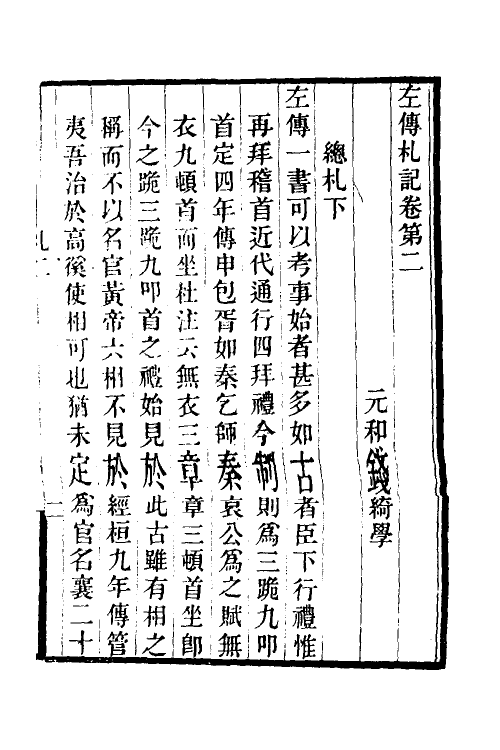 左傳札記卷第二
元和錢綺學
總札下
左傳一書可以考事始者甚多如古者臣下行禮惟
再拜稽首近代通行四拜禮今制則爲三跪九叩
首定四年傳申包胥如秦乞師秦哀公爲之賦無
衣九頓首而坐杜注云無衣三章章三頓首坐卽
今之跪三跪九叩首之禮始見於此古雖有相之
稱而不以名官黃帝六相不見於經桓九年傳管
夷吾治於高徯使相可也猶未定爲官名襄二十
札二
一